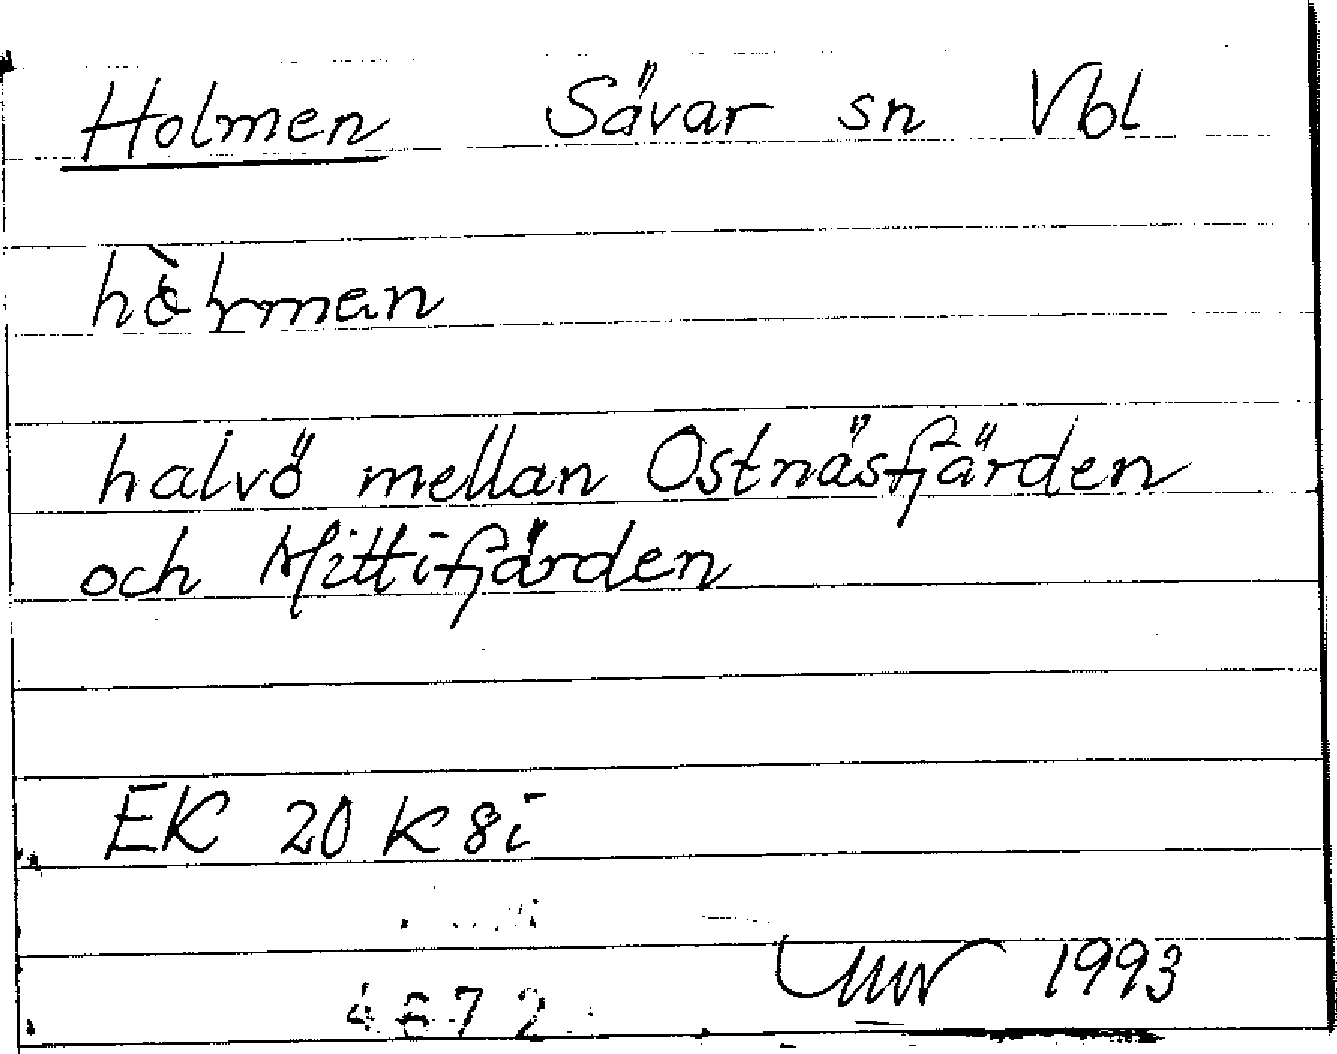 Holmen Sävar sn Vbl
halvö mellan Ostnäsfjärden
och Mittifjärden
EK 20 K 8i
1993
4672